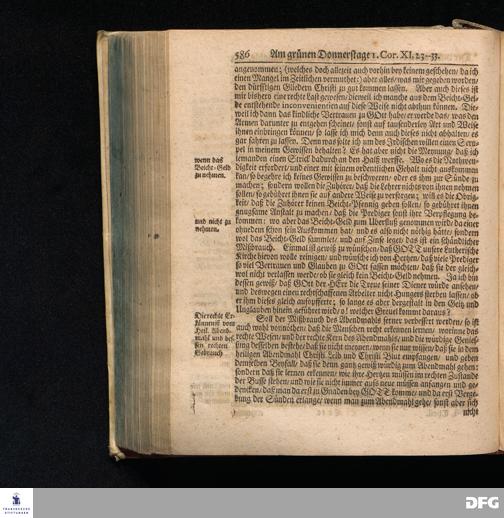 586 Am grünen Donnerstage 1. Cor. XI. 23-33.
angenommen; (welches doch allezeit auch vorhin bey keinem geschehen/ da ich
einen Mangel im Zeitlichen vermuthet:) aber alles/ was mir gegeben worden/
den dürfftigen Gliedern Christi zu gut kommen lassen. Aber auch dieses ist
mir bishero eine rechte Last gewesen/ dieweil ich manche aus dem Beicht-Gel-
de entstehende inconvenienzien auf diese Weise nicht abthun können. Die-
weil ich dann das kindliche Vertrauen zu GOtt habe/ er werde das/ was den
Armen darunter zu entgehen scheinet/ sonst auf tausenderley Art und Weise
ihnen einbringen können/ so lasse ich mich denn auch dieses nicht abhalten/ es
gar fahren zu lassen. Denn was solte ich um des Irdischen willen einen Scru-
pel in meinem Gewissen behalten? Es hat aber nicht die Meynung/ daß ich
wenn das
Beicht-Geld
zu nehmen.
jemanden einen Strick dadurch an den Halß werffe. Wo es die Nothwen-
digkeit erfordert/ und einer mit seinem ordentlichen Gehalt nicht auskommen
kan/ so begehre ich keines Gewissen zu beschweren/ oder es ihm zur Sünde zu
machen; sondern wollen die Zuhörer/ daß die Lehrer nichts von ihnen nehmen
sollen/ so gebühret ihnen sie auf andere Weise zu versorgen; will es die Obrig-
keit/ daß die Zuhörer keinen Beicht-Pfennig geben sollen/ so gebühret ihnen
gnugsame Anstalt zu machen/ daß die Prediger sonst ihre Verpflegung be-
und nicht zu
nehmen.
kommen: wo aber das Beicht-Geld zum Uberfluß genommen wird/ da einer
ohnedem schon sein Auskommen hat/ und es also nicht nöthig hätte/ sondern
wol das Beicht-Geld sammlet/ und auf Zinse leget/ das ist ein schändlicher
Mißbrauch. Einmal ist gewiß zu wünschen/ daß GOTT unsere Lutherische
Kirche hievon wolle reinigen/ und wünsche ich von Hertzen/ daß viele Prediger
so viel Vertrauen und Glauben zu GOtt fassen möchten/ daß sie der gleich-
wol nicht verlassen werde/ ob sie gleich kein Beicht-Geld nehmen. Ja ich bin
dessen gewiß/ daß GOtt der HErr die Treue seiner Diener würde ansehen/
und deswegen einen rechtschaffenen Arbeiter nicht Hungers sterben lassen/ ob
er ihm dieses gleich aufopfferte; so lange es aber dergestalt in den Geitz und
Unglauben hinein geführet wird/ o! welcher Greuel kommt daraus?
Die rechte Er-
känntniß vom
Heil. Abend-
mahl und des-
sen rechten
Gebrauch
Soll der Mißbrauch des Abendmahls ferner verbessert werden/ so ist
auch wohl vonnöthen/ daß die Menschen recht erkennen lernen/ worinne das
rechte Wesen/ und der rechte Kern des Abendmahls/ und die würdige Genies-
sung desselben bestehe/ daß sie nicht meynen/ wenn sie nur wissen/ daß sie in dem
heiligen Abendmahl Christi Leib und Christi Blut empfangen/ und geben
demselben Beyfall/ daß sie denn gantz gewiß würdig zum Abendmahl gehen:
sondern daß sie lernen erkennen/ wie ihre Hertzen müssen im rechten Zustande
der Busse stehen/ und wie sie nicht immer aufs neue müssen anfangen und ge-
dencken/ daß man da erst zu Gnaden bey GOTT komme/ und da erst Verge-
bung der Sünden erlange/ wenn man zum Abendmahl gehe/ sonst aber sich
nicht
FRANCKESCHE
STIFTUNGEN
DFG